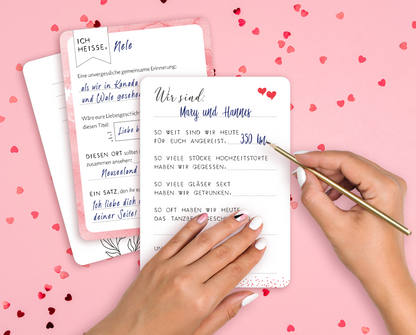 ICH
HEISSE,
Nele
Eine unvergessliche gemeinsame Erinnerung:
als wir in Kanada
und Wale gesehen
Wäre eure Liebesgeschichte
diesen Titel:
Liebe
DIESEN ORT solltet
zusammen ansehen:
Neuseeland
EIN SATZ, den ihr
Ich liebe dich
deiner Seite!
Wir sind:
Mary und Hannes
SO WEIT SIND WIR HEUTE
FÜR EUCH ANGEREIST. 350 km
SO VIELE STÜCKE HOCHZEITSTORTE
HABEN WIR GEGESSEN.
SO VIELE GLÄSER SEKT
HABEN WIR GETRUNKEN.
SO OFT HABEN WIR HEUTE
DAS TANZBEIN GESCHWUNGEN.